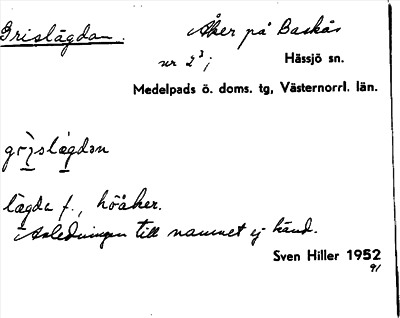 Grislägdan. Åker på Baskås
nr 2³; Hässjö sn.
Medelpads ö. doms. tg, Västernorrl. län.
lägde f., höåker.
Anledningen till namnet ej känd.
Sven Hiller 1952
91